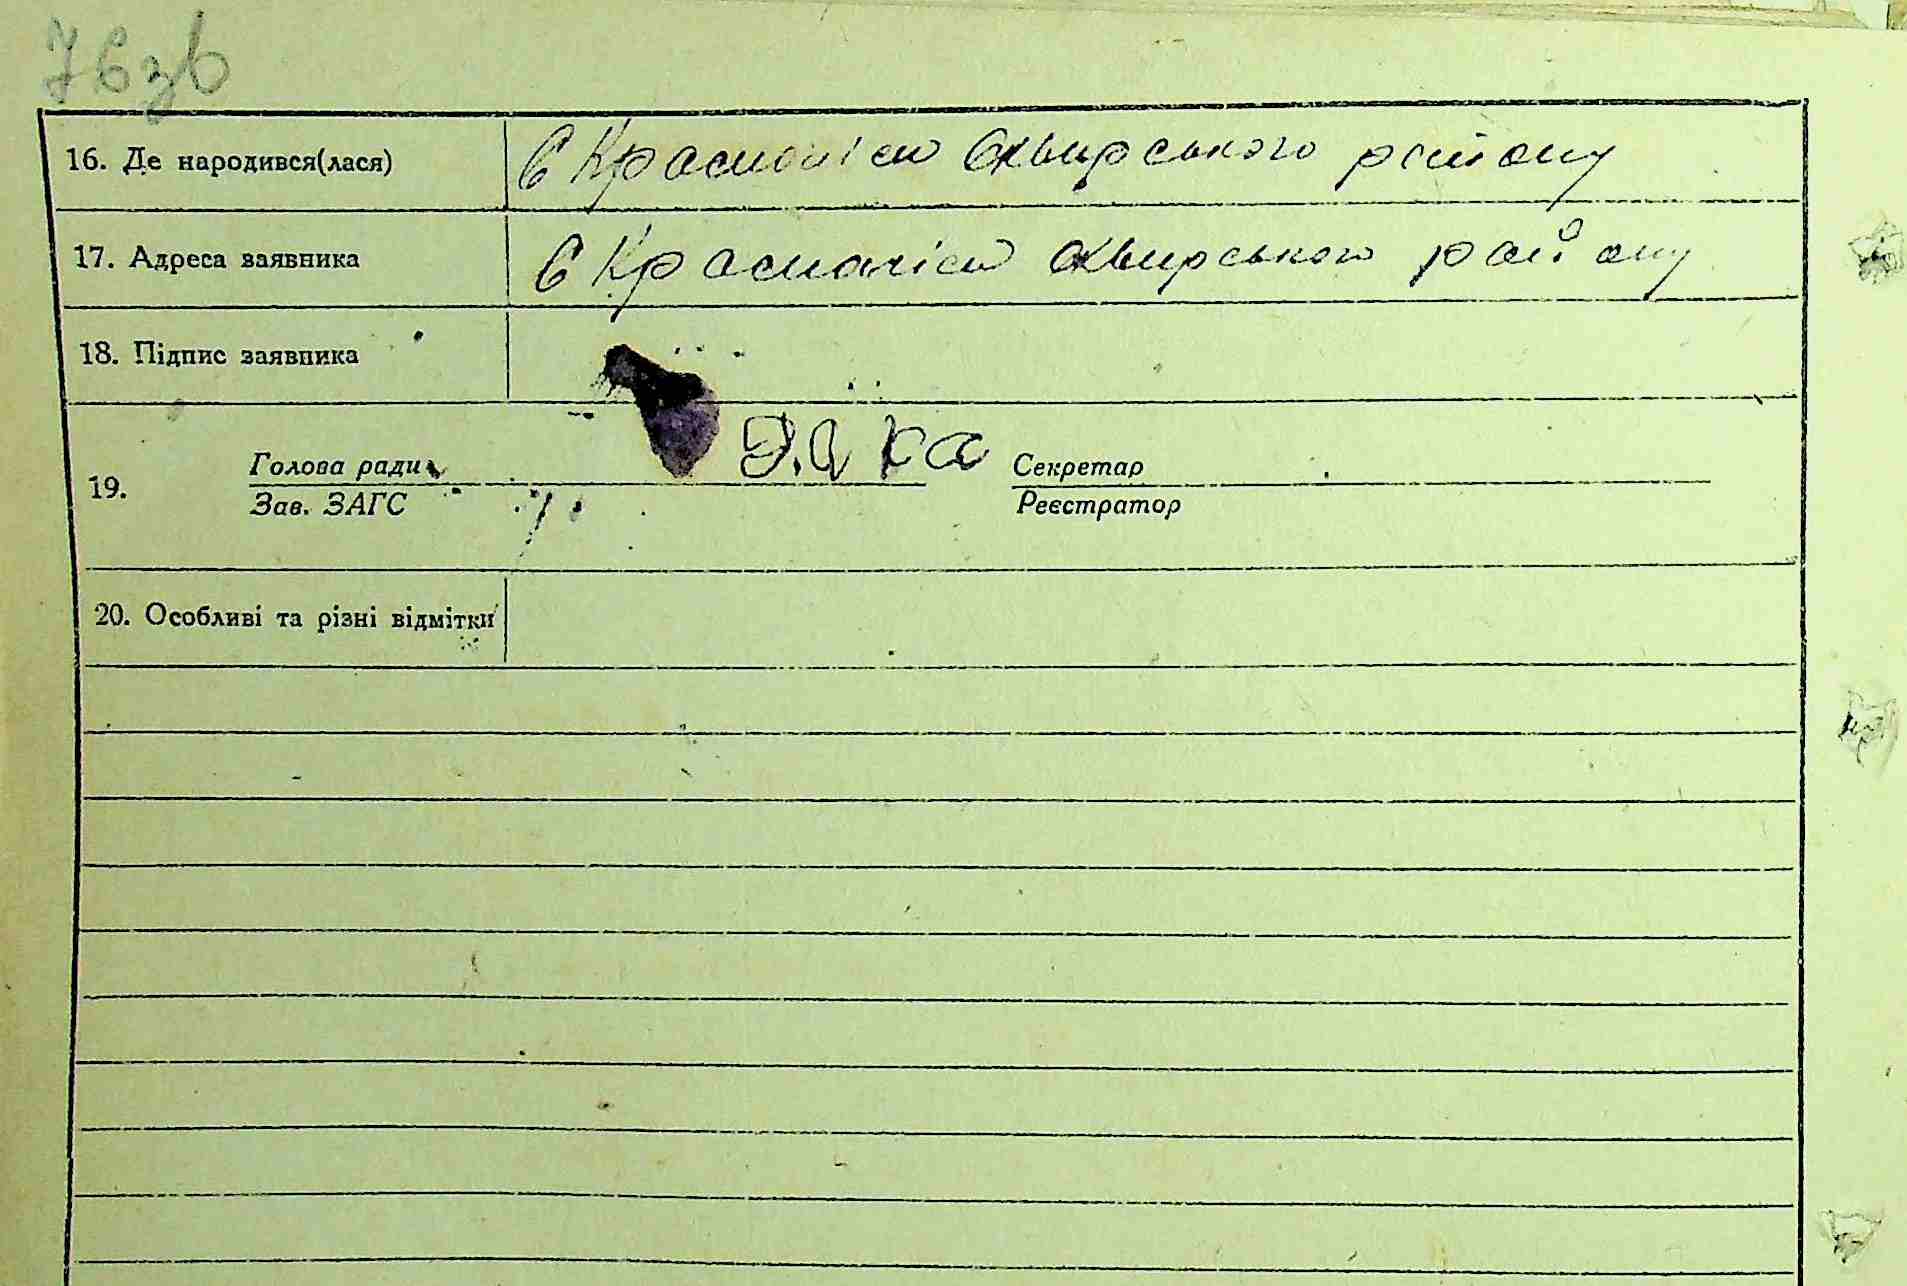 76зв
16. Де народився(лася) С Красноліси Сквирського району
17. Адреса заявника С Красноліси Сквирського району
18. Підпис заявника
19. Голова ради Секретар
Зав. ЗАГС Реєстратор
20. Особливі та різні відмітки